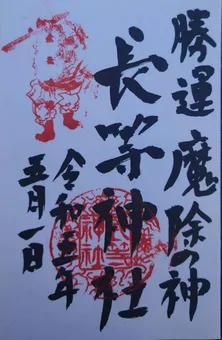 勝運 魔除の神
長等神社
令和三年
五月一日